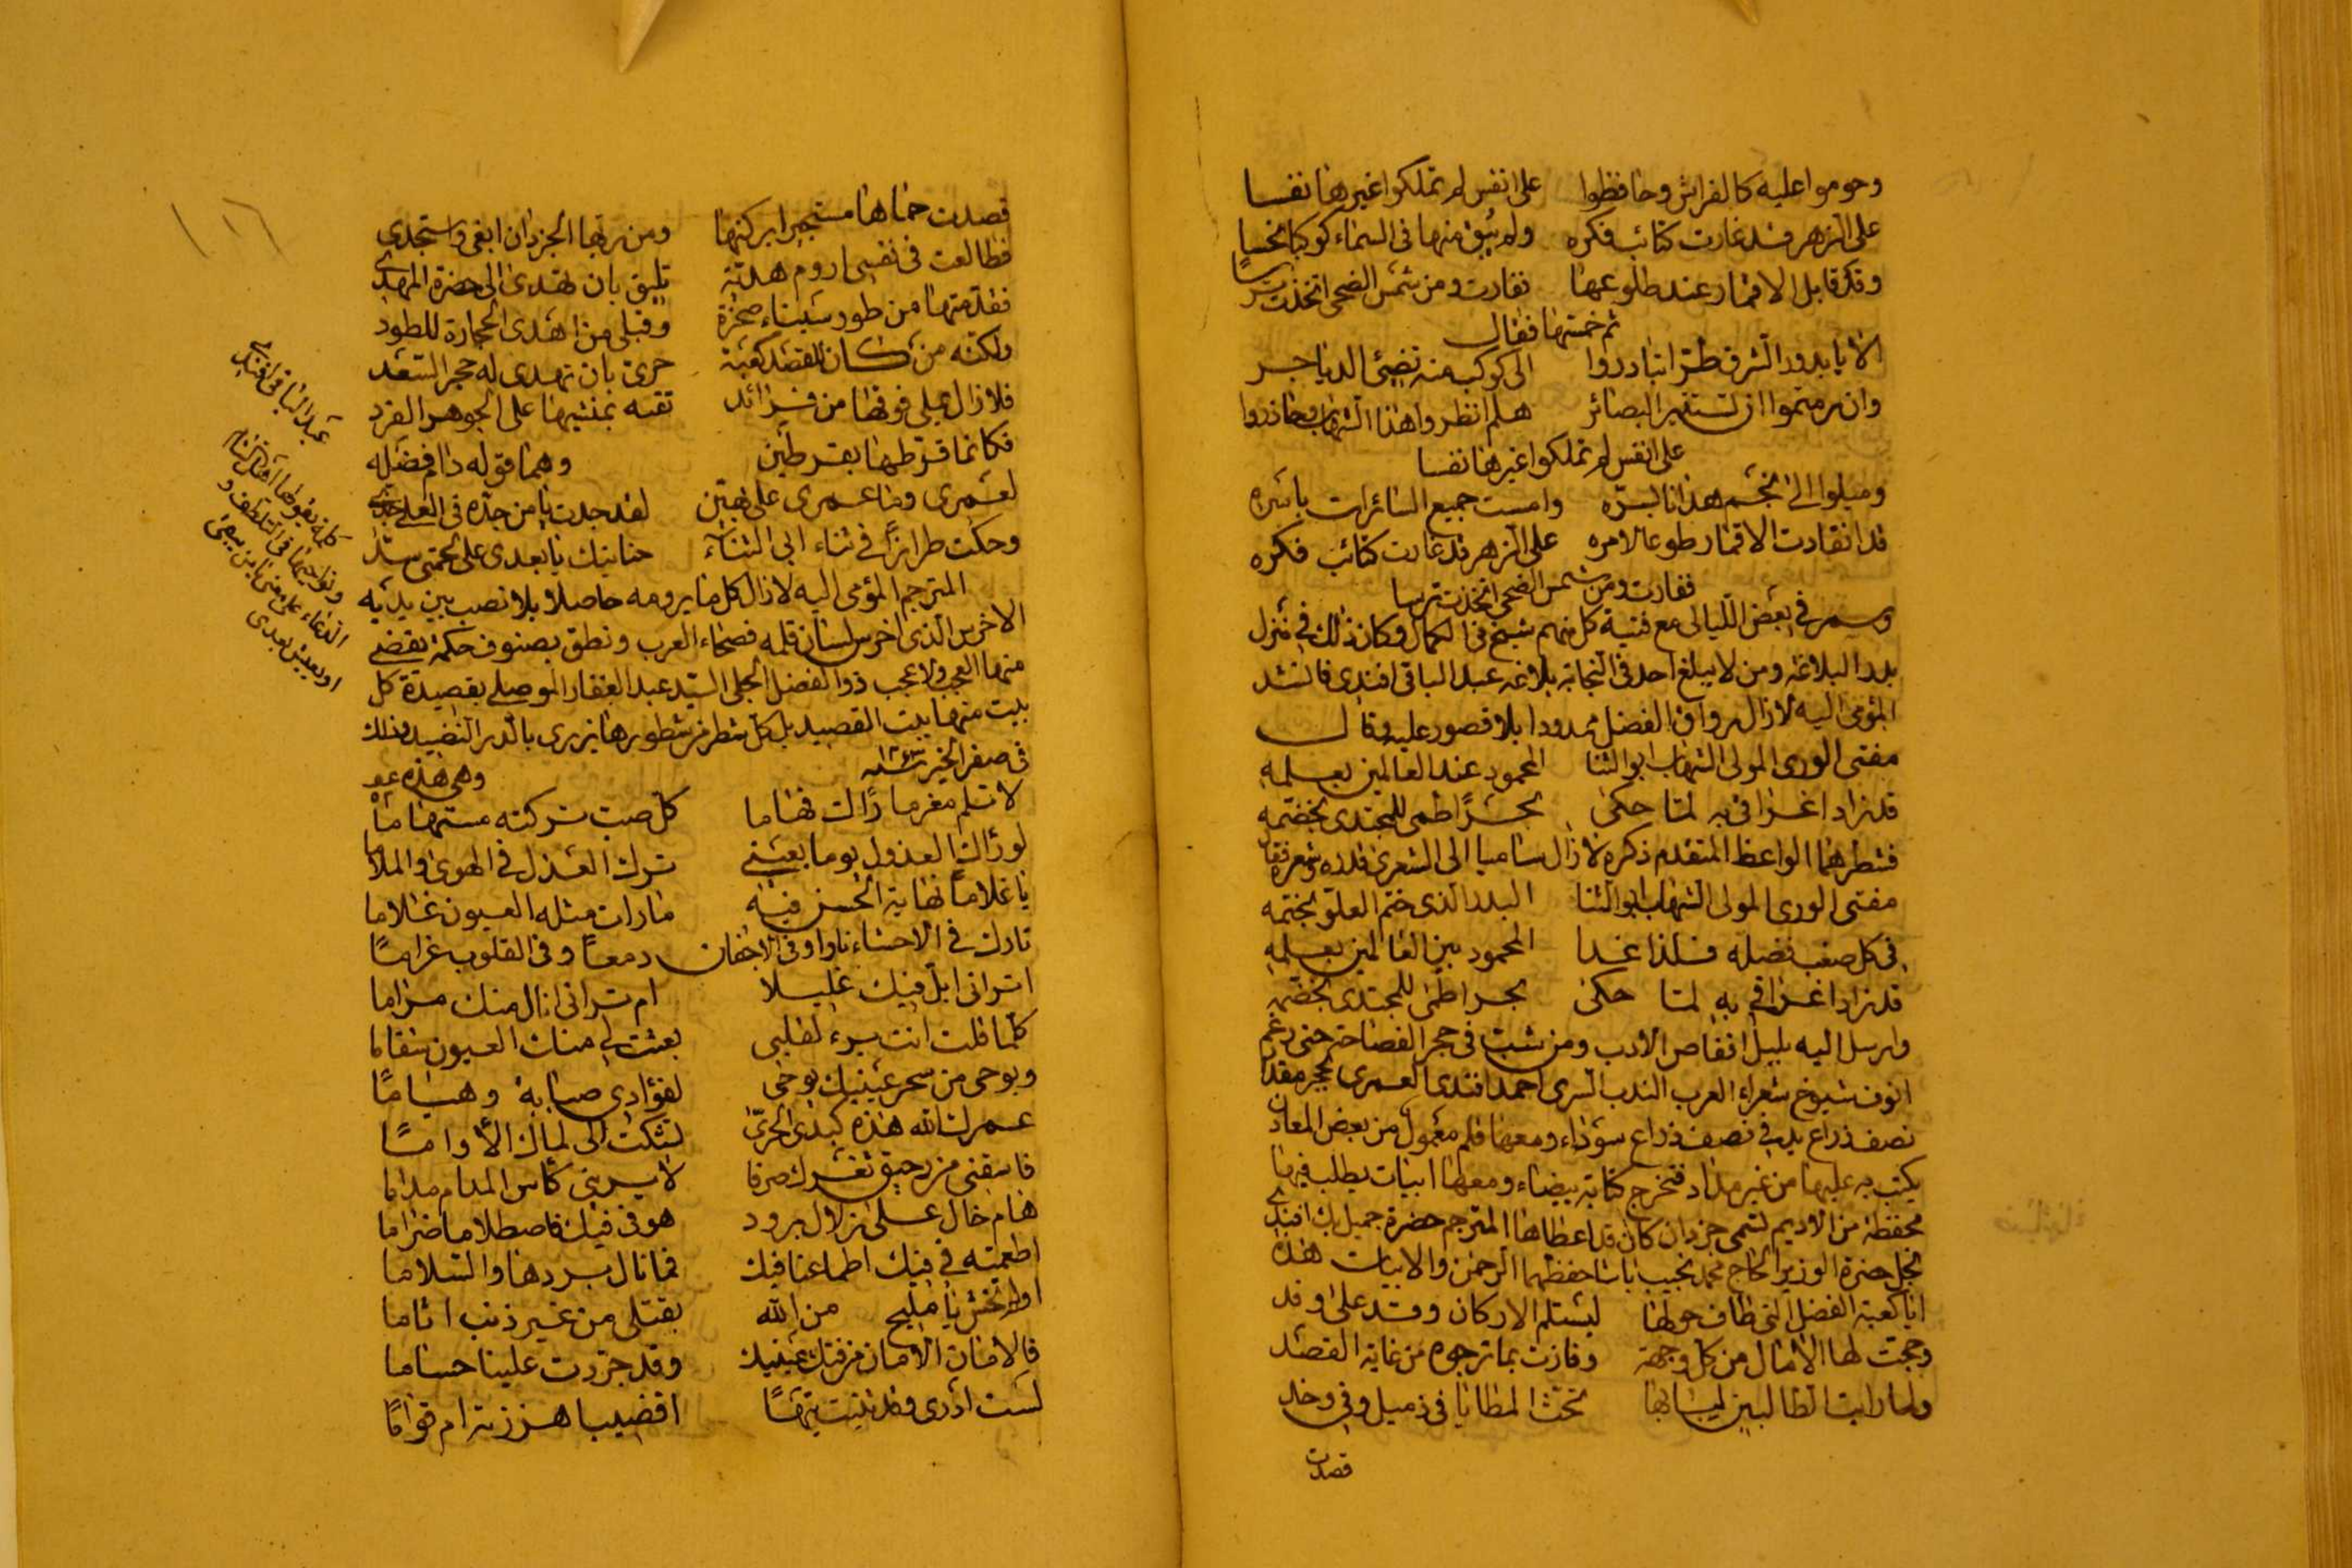 وحوموا عليه كالفراش وحافظوا على انفس لم تملكوا غيرها نفسا
على الزهر قد غارت كتائب فكره ولم يبق منها في السماء كوكبا نحسا
وقد قابل الاقمار عند طلوعها نقادت ومن شمس الضحى اتخذت ترسا
ثم خمستها فقال
الا يا بدور الشرق طرا تبادروا الى كوكب منه تضئ الدياجر
وان رمتموا ان تستنير البصائر هلم انظروا هذا الشهاب وحاذروا
على انفس لم تملكوا غيرها نفسا
وميلوا الى نجم هدانا بسره وامست جميع السائرات باسره
قد انقادت الاقمار طوعا لامره على الزهر قد غارت كتائب فكره
نقادت ومن شمس الضحى اتخذت ترسا
وسمر في بعض الليالي مع فتية كل منهم شيخ في الكمال وكان ذلك في منزل
بدر البلاغه ومن لا يبلغ احد في النجابة بلاغه عبد الباقي افندي فانشد
المؤمى اليه لا زال رواق الفضل ممدودا بلا قصور عليه وقال
مفتي الورى المولى الشهاب ابو الثنا المحمود عند العالمين بعلمه
قد زاد اغرافي به لما حكى بحرا طمى للمجتدى بخضمه
فشطرهما الواعظ المتقدم ذكره لا زال ساميا الى الشعرى قدره وشعره فقال
مفتي الورى المولى الشهاب ابو الثنا البدر الذي ختم العلو بختمه
في كل صقب فضله فلذا غدا المحمود بين العالمين بعلمه
قد زاد اغرافي به لما حكى بحرا طمى للمجتدى بخضمه
وارسل اليه بلبل اقفاص الادب ومن شب في حجر الفصاحة حتى رغم
انوف شيوخ شعراء العرب الندب السرى احمد افندى العمرى بحجر مقدار
نصف ذراع يد في نصف ذراع سوداء ومعها قلم معمول من بعض المعادن
يكتب به عليها من غير مداد فتخرج كتابة بيضاء ومعها ابيات يطلب فيها
محفظة من الاديم تسمى جزدان كان قد اعطاها المترجم حضرة جميل بك افندي
نجل حضرة الوزير الحاج محمد نجيب باشا حفظهما الرحمن والابيات هذه
ايا كعبة الفضل التي طاف حولها ليستلم الاركان وفد على وفد
وحجت لها الامال من كل وجهة وفازت بما ترجوه من غاية القصد
ولما رايت الطالبين لبابها تحث المطايا في ذميل وفي وخد
قصدت
١١٦
قصدت حماها مستجيرا بركنها ومن ربها الجزدان ابغي واستجدي
فطالعت في نفسي اروم هدية تليق بان تهدى الى حضرة المهدي
فقدمتها من طور سيناء صخرة وقبلي من اهدى الحجارة للطود
ولكنه من كان للقصد كعبة حرى بان تهدى له حجر السعد
فلا زال يملي فوقها من فرائد تقيه بمنشيها على الجوهر الفرد
فكانما قرطها بقرطين وهما قوله دام فضله
لعمري وما عمري على بهين لقد جدت يا من جده في العلى جدي
وحكت طرازا في ثناء ابي الثناء حنانيك يا بعدي على لحمتي سدي
المترجم المؤمى اليه لا زال كل ما يرومه حاصلا بلا نصب بين يديه
الاخرس الذي اخرس لسان قلمه فصحاء العرب ونطق بصنوف حكمة يقضي
منها العجب ولا عجب ذو الفضل الجلي السيد عبد الغفار الموصلي بقصيدة كل
بيت منها بيت القصيد بل كل شطر من شطورها يزري بالدر النضيد وذلك
في صفر الخير وهي هذه
لا تلم مغرما رآك فهاما كل صب تركته مستهاما
لو رآك العذول يوما بعيني ترك العذل في الهوى والملاما
يا غلاما نهاية الحسن فيه ما رات مثله العيون غلاما
تارك في الاحشاء نارا وفي الاجفان دمعا وفي القلوب غراما
اتراني ابل فيك غليلا ام تراني انال منك مراما
كلما قلت انت برء لقلبي بعثت لي منك العيون سقاما
وبوحى من سحر عينيك يوحى لفؤادي صبابة وهياما
عمرك الله هذه كبدي الحرى تشكت الى لماك الاواما
فاسقني من رحيق ثغرك صرفا لا يريني كاس المدام مداما
هام خال على زلال برود هو في فيك فاصطلاما ضراما
اطعمته في فيك اطماعنا فيك فما نال بردها والسلاما
اولم تخش يا مليح من الله بقتلي من غير ذنب اثاما
فالامان الامان من فتك عينيك وقد جردت علينا حساما
لست ادري وقد تثنيت تيها اقضيبا هززته ام قواما
عبد الباقي افندي
كلمة يقولها اهل الشام
ونواحيها في التلطف و
الدعاء على معنى يا من يبقى
او يعيش بعدي